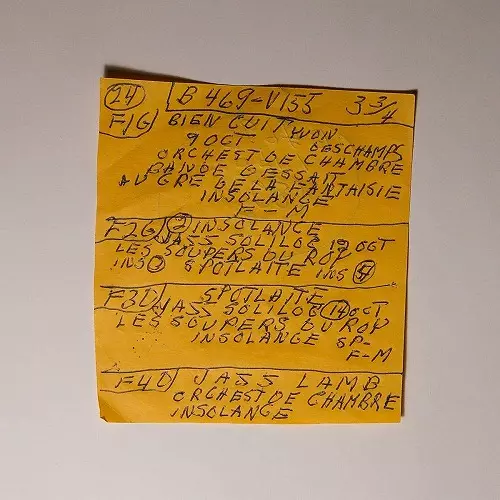 24 B 469-V155 3 3/4
F1G BIEN CUIT
9 OCT. DESCHAMPS
ORCHEST DE CHAMBRE
BANDE DESSAIT
AU GRE DE LA FANTAISIE
INSOLANGE
F-M
F2G INSOLANCE
JASS SOLILOC 19 OCT
LES SOUPERS DU ROY
INS SPOTLAITE INS
F3D SPOTLAITE
JASS SOLILOC 14 OCT
LES SOUPERS DU ROY
INSOLANGE SP-
F-M
F4D JASS LAMB
ORCHEST DE CHAMBRE
INSOLANGE